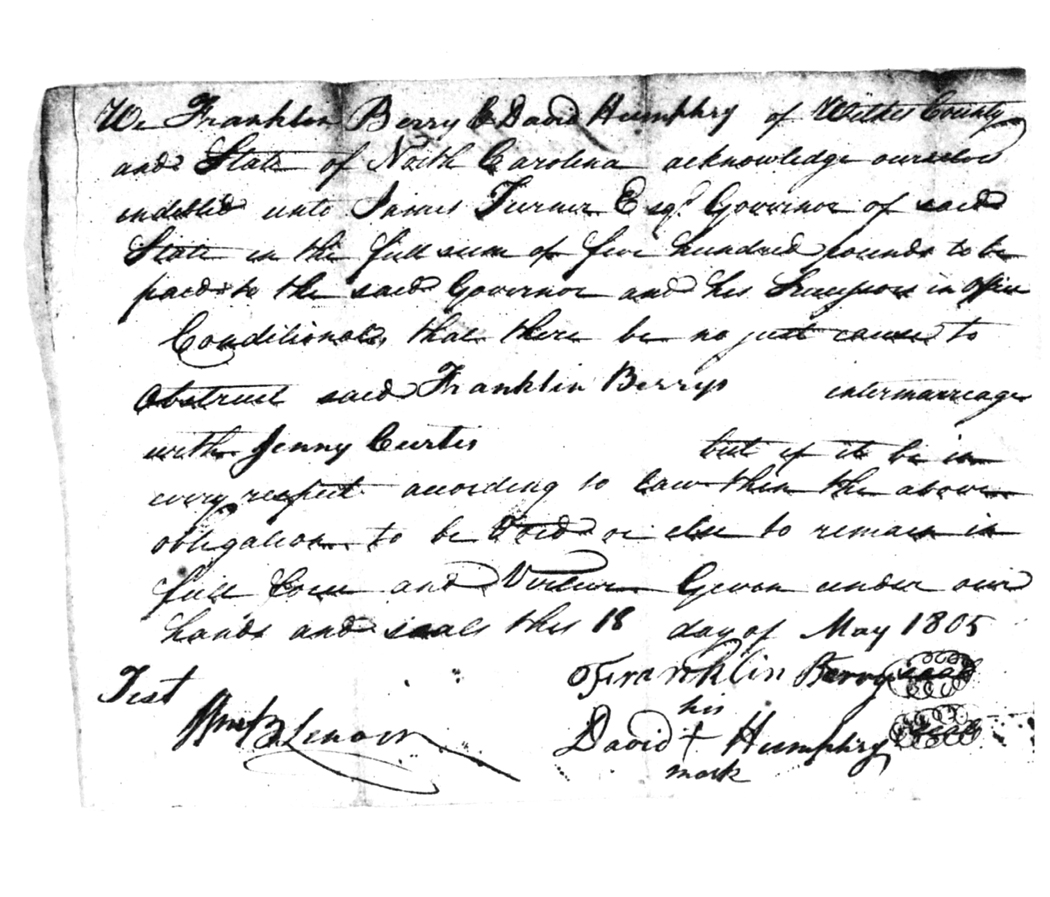 We Franklin Berry & David Humphry of Wilkes County
and State of North Carolina acknowledge ourselves
indebted unto James Turner Esqr. Governor of said
State in the full sum of five hundred pounds to be
paid to the said Governor and his Successors in office
Conditioned, that there be no just cause to
Obstruct said Franklin Berrys intermarriage
with Jenny Curtis but if it be in
every respect according to law then the above
obligation to be Void or else to remain in
full force and Virtue Given under our
hands and seals this 18 day of May 1805
Test Franklin Berry seal
his
Wm B Lenoir David + Humphry seal
mark